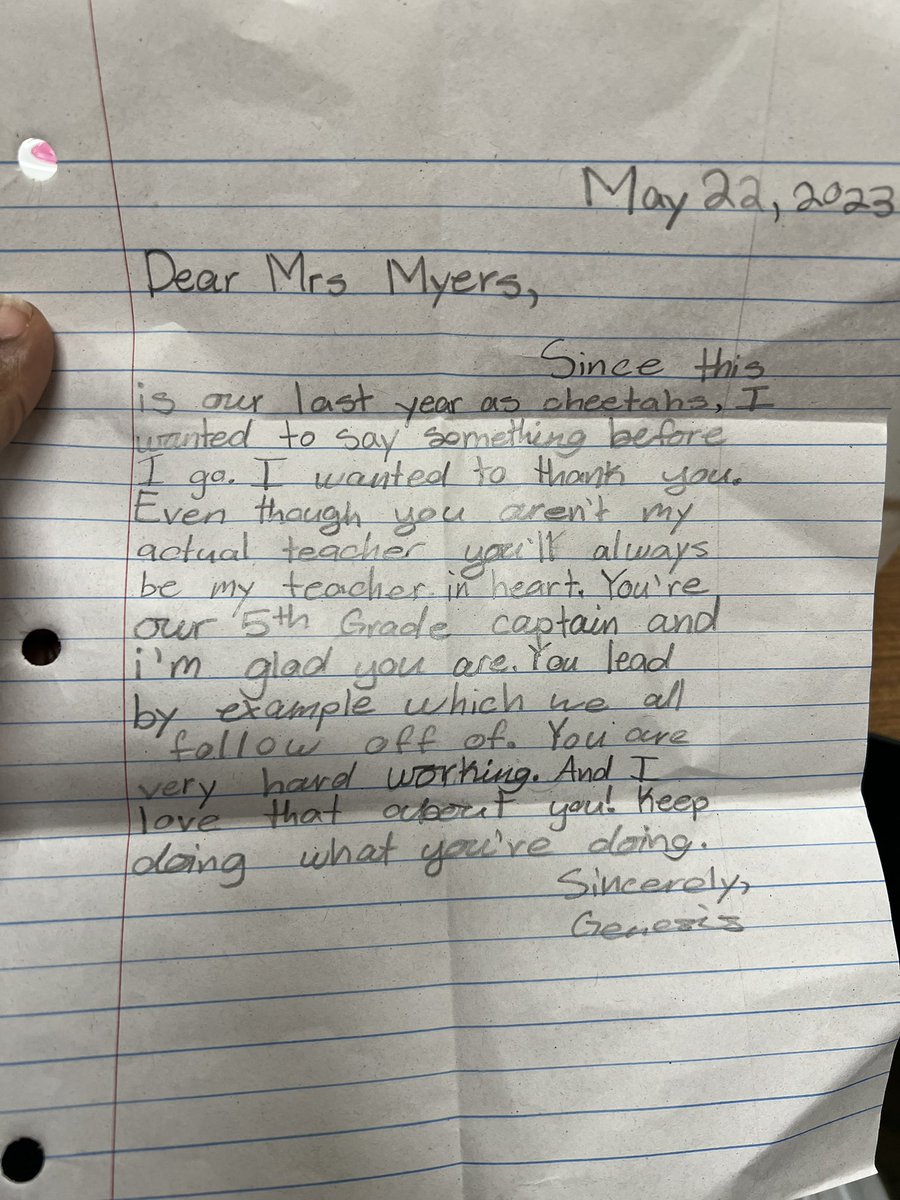 May 22, 2023
Dear Mrs Myers,
Since this
is our last year as cheetahs, I
wanted to say something before
I go. I wanted to thank you.
Even though you aren't my
actual teacher you'll always
be my teacher in heart. You're
our 5th Grade captain and
i'm glad you are. You lead
by example which we all
follow off of. You are
very hard working. And I
love that about you! Keep
doing what you're doing.
Sincerely,
Genesis